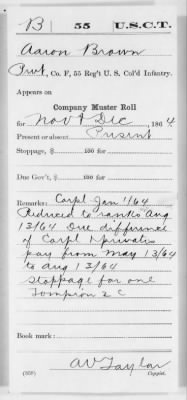 B | 55 | U.S.C.T.
Aaron Brown
Pvt, Co. F, 55 Reg't U. S. Col'd Infantry.
Appears on
Company Muster Roll
for Nov & Dec, 1864
Present or absent Present
Stoppage, $ 100 for
Due Gov't, $ 100 for
Remarks: Corpl Jan 1/64
Reduced to ranks Aug
13/64 Due difference
of Corpl & privates
pay from May 13/64
to Aug 13/64
Stoppage for one
Tompion 2 c
Book mark:
AV Taylor
(358) Copyist.